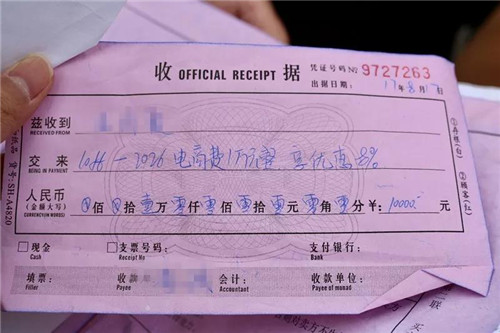 收 OFFICIAL RECEIPT 据
凭证号码 NO 9727263
出据日期: 17年8月17日
兹收到
RECEIVED FROM
交来 loft-2026 电商费1万元整 享优惠8%
BEING IN PAYMENT
人民币 佰 拾 壹万 零仟 零佰 零拾 零元 零角 零分 ¥: 10000.
(金额大写)
(CURRENCY)(IN WORDS)
□现金 □支票号码: 支付银行:
Cash Receipt No Bank
填票: 收款 会计: 收款单位:
Filler Payee Accountant Payee of monad
货号:SH-A4820
①存根(白)
②顾客(红)